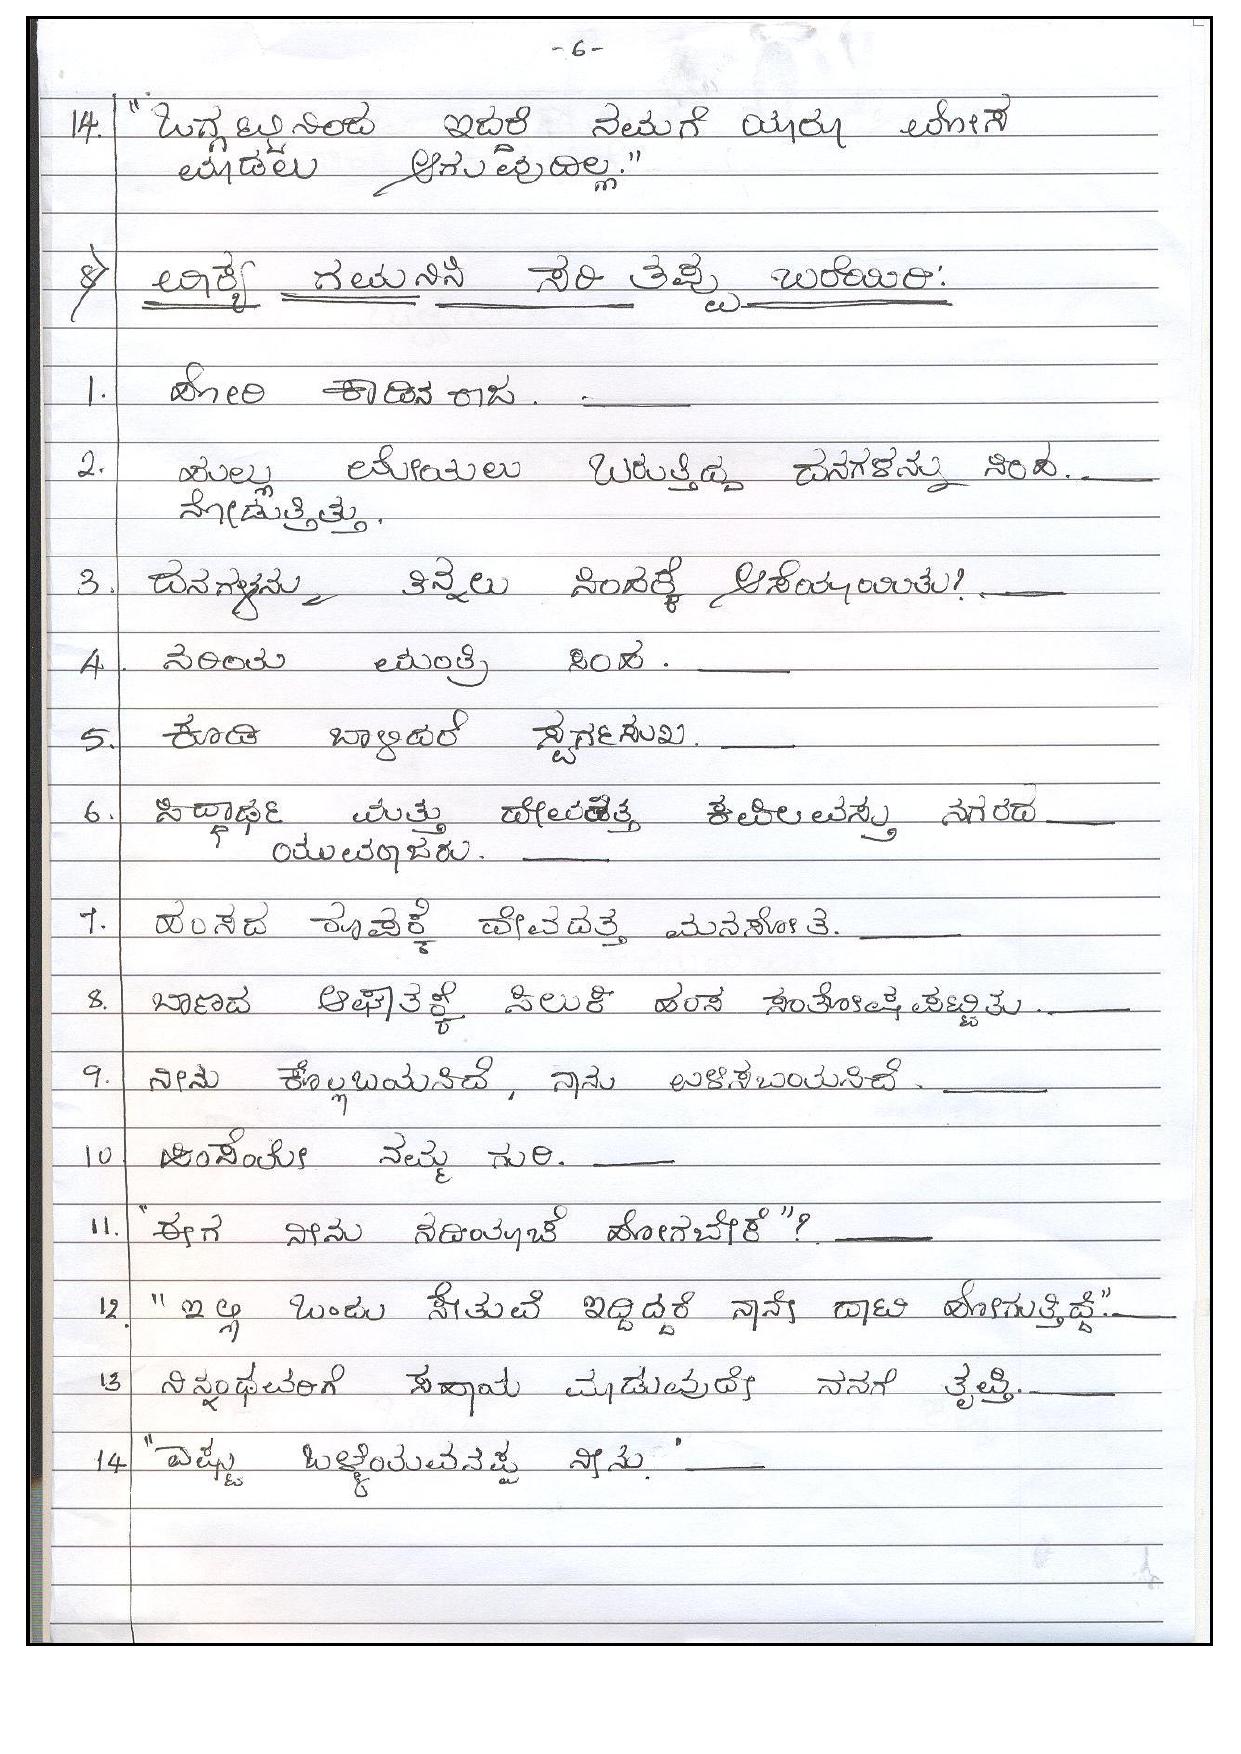 -6-
14. "ಒಗ್ಗಟ್ಟಿನಿಂದ ಇದ್ದರೆ ನಮಗೆ ಯಾರೂ ಮೋಸ
ಮಾಡಲು ಆಗುವುದಿಲ್ಲ."
8) ವಾಕ್ಯ ಗಮನಿಸಿ ಸರಿ ತಪ್ಪು ಬರೆಯಿರಿ:
1. ಹೋರಿ ಕಾಡಿನ ರಾಜ.
2. ಹುಲ್ಲು ಮೇಯಲು ಬರುತ್ತಿದ್ದ ದನಗಳನ್ನು ಸಿಂಹ.
ನೋಡುತ್ತಿತ್ತು.
3. ದನಗಳನ್ನು ತಿನ್ನಲು ಸಿಂಹಕ್ಕೆ ಆಸೆಯಾಯಿತು?.
4. ನರಿಯು ಮಂತ್ರಿ ಸಿಂಹ.
5. ಕೂಡಿ ಬಾಳಿದರೆ ಸ್ವರ್ಗಸುಖ.
6. ಸಿದ್ಧಾರ್ಥ ಮತ್ತು ದೇವದತ್ತ ಕಪಿಲವಸ್ತು ನಗರದ
ಯುವರಾಜರು.
7. ಹಂಸದ ರೂಪಕ್ಕೆ ದೇವದತ್ತ ಮನಸೋತ.
8. ಬಾಣದ ಆಘಾತಕ್ಕೆ ಸಿಲುಕಿ ಹಂಸ ಸಂತೋಷಪಟ್ಟಿತು.
9. ನೀನು ಕೊಲ್ಲಬಯಸಿದೆ, ನಾನು ಉಳಿಸಬಯಸಿದೆ.
10 ಹಿಂಸೆಯೇ ನಮ್ಮ ಗುರಿ.
11. "ಈಗ ನೀನು ನದಿಯಾಚೆ ಹೋಗಬೇಕೆ"?
12. "ಇಲ್ಲಿ ಒಂದು ಸೇತುವೆ ಇದ್ದಿದ್ದರೆ ನಾನೇ ದಾಟಿ ಹೋಗುತ್ತಿದ್ದೆ".
13 ನಿನ್ನಂಥವರಿಗೆ ಸಹಾಯ ಮಾಡುವುದೇ ನನಗೆ ತೃಪ್ತಿ.
14 "ಎಷ್ಟು ಒಳ್ಳೆಯವನಪ್ಪ ನೀನು."